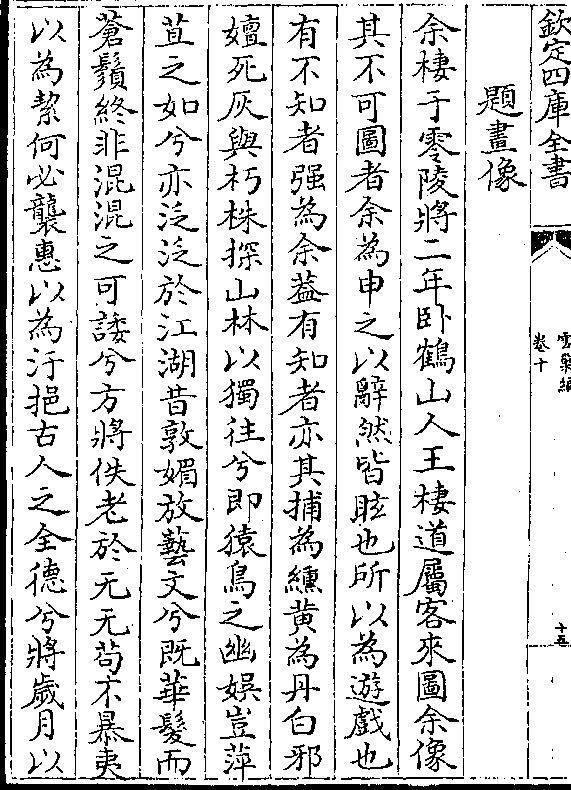 欽定四庫全書
雲巢編
卷十
十五
題畫像
余棲于零陵將二年卧鶴山人王棲道屬客來圖余像
其不可圖者余為申之以辭然皆眩也所以為遊戲也
有不知者强為余葢有知者亦其捕為纁黄為丹白邪
嬗死灰與朽株探山林以獨往兮即猿鳥之幽娯豈萍
苴之如兮亦泛泛於江湖昔敦媚放藝文兮既華髮而
蒼鬚終非混混之可諉兮方將佚老於无无苟不暴夷
以為絜何必襲惠以為汙挹古人之全德兮將歲月以